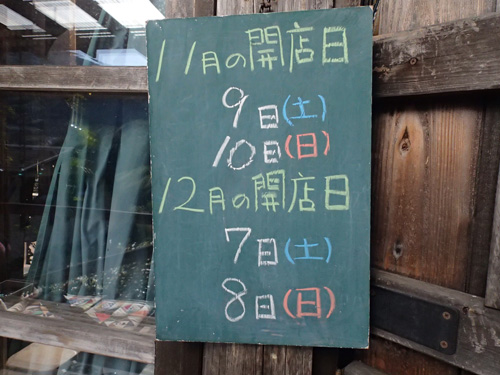 11月の開店日
9日(土)
10日(日)
12月の開店日
7日(土)
8日(日)